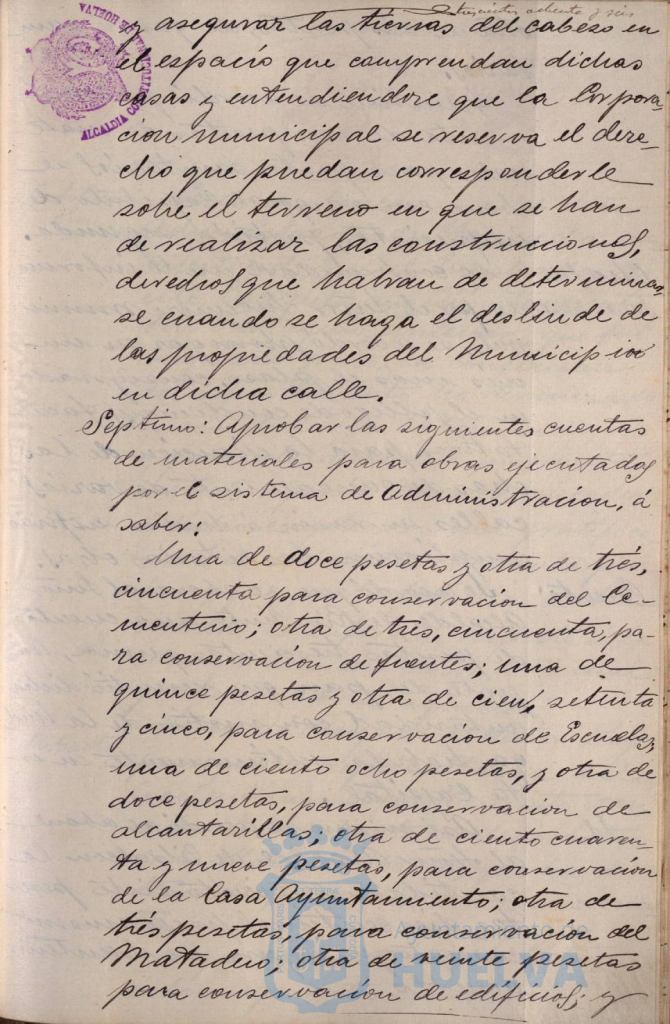 Doscientos ochenta y seis
ALCALDIA CONSTITUCIONAL DE HUELVA
y asegurar las tierras del cabezo en
el espacio que comprendan dichas
casas y entendiendose que la Corpora-
cion municipal se reserva el dere-
cho que puedan corresponderle
sobre el terreno en que se han
de realizar las construcciones,
derechos que habran de determinar
se cuando se haga el deslinde de
las propiedades del Municipio
en dicha calle.
Septimo: Aprobar las siguientes cuentas
de materiales para obras ejecutados
por el sistema de Administracion, á
saber:
Una de doce pesetas y otra de trés,
cincuenta para conservacion del Ce-
menterio; otra de tres, cincuenta, pa-
ra conservacion de fuentes; una de
quince pesetas y otra de cien, setenta
y cinco, para conservacion de Escuelas;
una de ciento ocho pesetas, y otra de
doce pesetas, para conservacion de
alcantarillas; otra de ciento cuaren-
ta y nueve pesetas, para conservacion
de la Casa Ayuntamiento; otra de
trés pesetas, para conservacion del
Matadero; otra de veinte pesetas
para conservacion de edificios; y
HUELVA